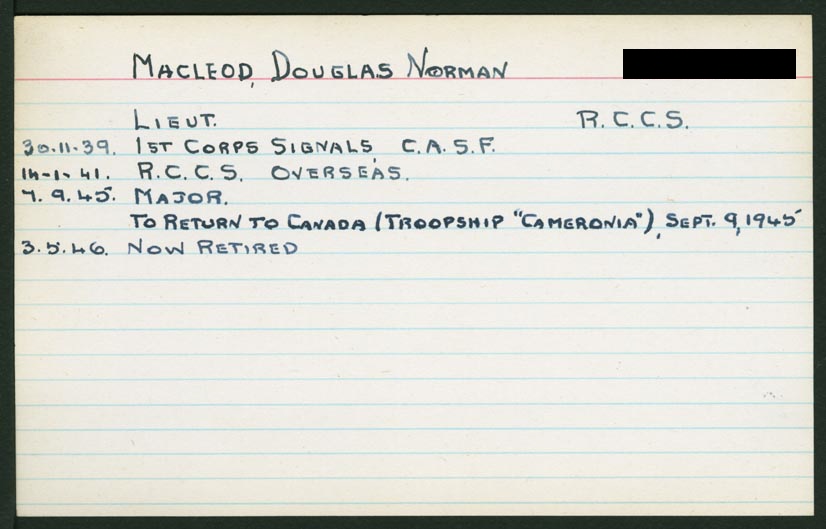 MACLEOD, DOUGLAS NORMAN
LIEUT. R.C.C.S.
30.11.39. 1ST CORPS SIGNALS, C.A.S.F.
14-1-41. R.C.C.S. OVERSEAS.
7.9.45. MAJOR.
TO RETURN TO CANADA (TROOPSHIP "CAMERONIA"), SEPT. 9, 1945
3.5.46. NOW RETIRED